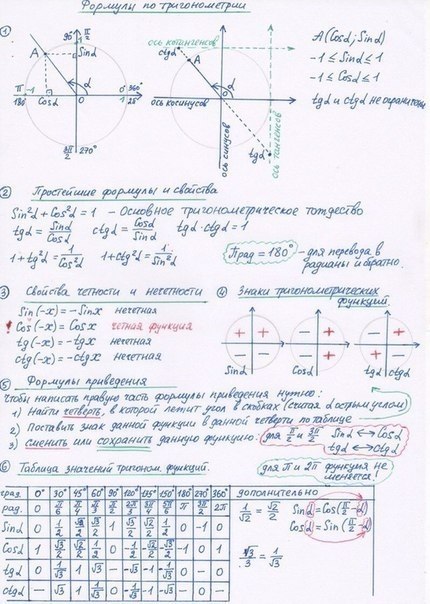 Формулы по тригонометрии
①
90° π/2
A
Sinα
α
π -1
180°
Cosα
0
0 360°
1 2π
3π/2 270°
ось котангенсов
ctgα
A
α
ось косинусов
0
ось синусов
tgα
ось тангенсов
A(Cosα; Sinα)
-1 ≤ Sinα ≤ 1
-1 ≤ Cosα ≤ 1
tgα и ctgα не ограничены
② Простейшие формулы и свойства
Sin²α + Cos²α = 1 – Основное тригонометрическое тождество
tgα = Sinα/Cosα ctgα = Cosα/Sinα tgα · ctgα = 1
1 + tg²α = 1/Cos²α 1 + ctg²α = 1/Sin²α
π рад = 180° – для перевода в радианы и обратно.
③ Свойства четности и нечетности
Sin(-x) = -Sinx нечетная
! Cos(-x) = Cosx четная функция
tg(-x) = -tgx нечетная
ctg(-x) = -ctgx нечетная
④ Знаки тригонометрических функций.
+ + - + - +
- - - + + -
Sinα Cosα tgα ctgα
⑤ Формулы приведения
Чтобы написать правую часть формулы приведения нужно:
1) Найти четверть, в которой лежит угол в скобках (считая α острым углом)
2) Поставить знак данной функции в данной четверти по таблице
3) сменить или сохранить данную функцию:
для π/2 и 3π/2 Sinα ↔ Cosα
tgα ↔ ctgα
для π и 2π функция не меняется!
⑥ Таблица значений тригоном. функций.
град. 0° 30° 45° 60° 90° 120° 135° 150° 180° 270° 360°
рад. 0 π/6 π/4 π/3 π/2 2π/3 3π/4 5π/6 π 3π/2 2π
Sinα 0 1/2 √2/2 √3/2 1 √3/2 √2/2 1/2 0 -1 0
Cosα 1 √3/2 √2/2 1/2 0 -1/2 -√2/2 -√3/2 -1 0 1
tgα 0 1/√3 1 √3 — -√3 -1 -1/√3 0 — 0
ctgα — √3 1 1/√3 0 -1/√3 -1 -√3 — 0 —
дополнительно
1/√2 = √2/2
√3/3 = 1/√3
Sinα = Cos(π/2 - α)
Cosα = Sin(π/2 - α)